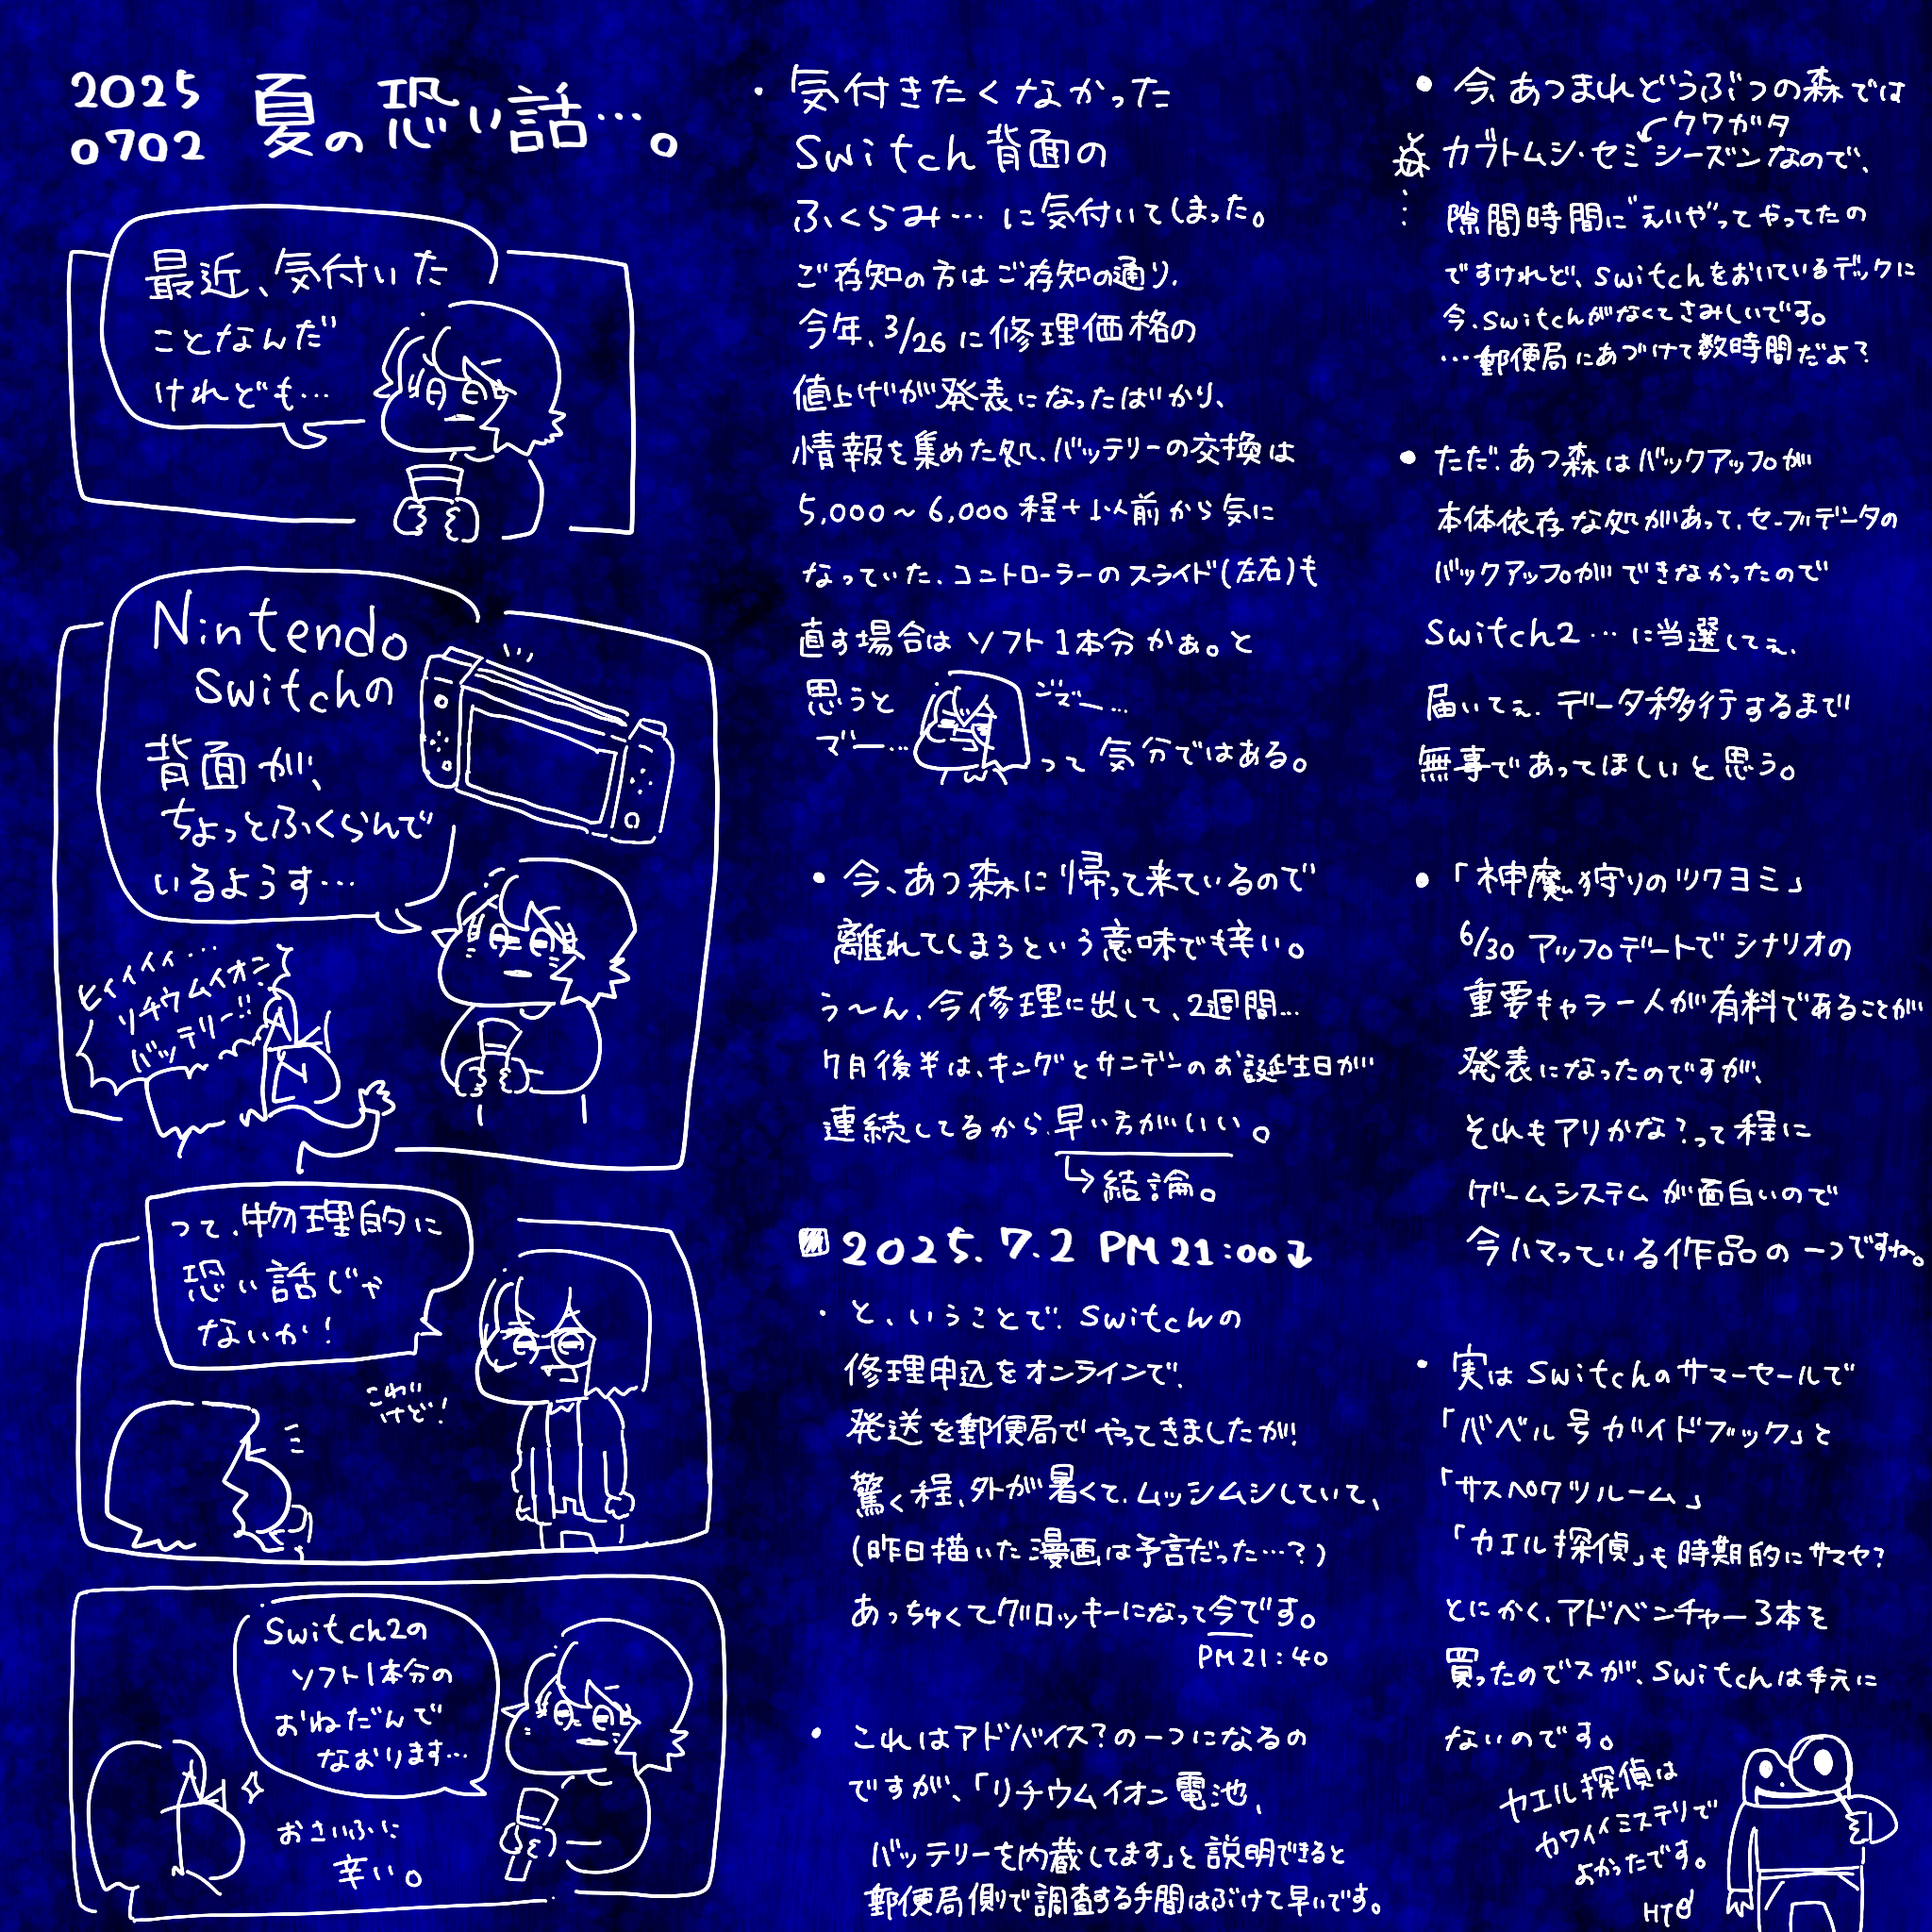 2025
0702
夏の恐い話…。
最近、気付いた
ことなんだ
けれども…
Nintendo
Switchの
背面が、
ちょっとふくらんで
いるようす…
ヒィィィィ…
リチウムイオン
バッテリー!!
って、物理的に
恐い話じゃ
ないか!
こわい
けど!
Switch2の
ソフト1本分の
おねだんで
なおります…
おさいふに
辛い。
・気付きたくなかった
Switch背面の
ふくらみ…に気付いてしまった。
ご存知の方はご存知の通り、
今年、3/26に修理価格の
値上げが発表になったばかり、
情報を集めた処、バッテリーの交換は
5,000〜6,000程+以前から気に
なっていた、コントローラーのスライド(左右)も
直す場合はソフト1本分かぁ。と
思うと
マ゛ー…
ジマ゛ー…
って気分ではある。
・今、あつ森に帰って来ているので
離れてしまうという意味でも辛い。
う〜ん、今修理に出して、2週間…
7月後半は、キングとサニデーのお誕生日が
連続してるから、早い方がいい。
↳結論。
2025.7.2 PM21:00↓
・と、いうことで、Switchの
修理申込をオンラインで、
発送を郵便局でやってきましたが!
驚く程、外が暑くて、ムッシムシしていて、
(昨日描いた漫画は予言だった…?)
あっちゅくてグロッキーになって今です。
PM21:40
・これはアドバイス?の一つになるの
ですが、「リチウムイオン電池、
バッテリーを内蔵してます」と説明できると
郵便局側で調査する手間はぶけて早いです。
・今、あつまれどうぶつの森では
クワガタ
カブトムシ・セミシーズンなので、
隙間時間に゛えいや゛ってやってたの
ですけれど、Switchをおいているデックに
今、Switchがなくてさみしいです。
…郵便局にあづけて数時間だよ?
・ただ、あつ森はバックアップが
本体依存な処があって、セーブデータの
バックアップができなかったので
Switch2…に当選してぇ、
届いてぇ、データ移行するまで
無事であってほしいと思う。
・「神魔狩りのツクヨミ」
6/30アップデートでシナリオの
重要キャラ一人が有料であることが
発表になったのですが、
それもアリかな?って程に
ゲームシステムが面白いので
今ハマっている作品の一つですね。
・実はSwitchのサマーセールで
「バベル号ガイドブック」と
「サスペクツルーム」
「カエル探偵」も時期的にサマヤ?
とにかく、アドベンチャー3本を
買ったのでスが、Switchは手元に
ないのです。
カエル探偵は
カワイイミステリで
よかったです。